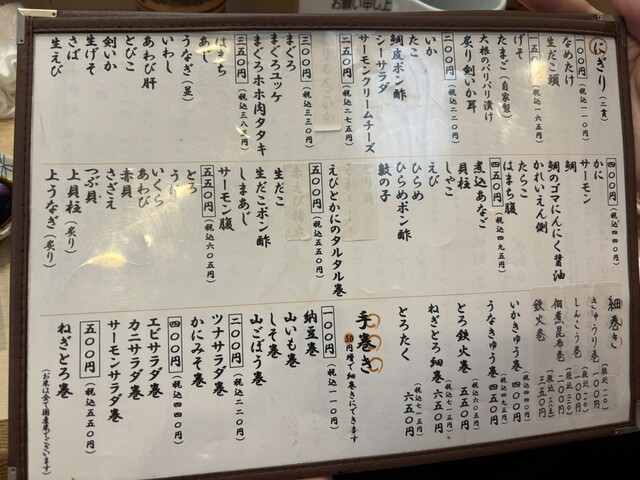 お願い申し上
にぎり(二貫)
一〇〇円(税込一一〇円)
なめたけ
生だこ頭
一五〇円(税込一六五円)
げそ
たまご(自家製)
大根のパリパリ漬け
炙り剣いか耳
二〇〇円(税込二二〇円)
いか
たこ
鯛皮ポン酢
シーサラダ
サーモンクリームチーズ
二五〇円(税込二七五円)
三〇〇円(税込三三〇円)
まぐろ
まぐろユッケ
まぐろホホ肉タタキ
三五〇円(税込三八五円)
はまち
あじ
うなぎ(並)
いわし
あわび肝
とびこ
剣いか
生げそ
さば
生えび
四〇〇円(税込四四〇円)
かに
サーモン
鯛
鯛のゴマにんにく醤油
かれいえん側
たらこ
はまち腹
四五〇円(税込四九五円)
煮込あなご
貝柱
しゃこ
えび
ひらめ
ひらめポン酢
数の子
えびとかにのタルタル巻
五〇〇円(税込五五〇円)
生だこ
生だこポン酢
しまあじ
サーモン腹
五五〇円(税込六〇五円)
とろ
うに
いくら
あわび
赤貝
さざえ
つぶ貝
上貝柱(炙り)
上うなぎ(炙り)
細巻き
きゅうり巻 一〇〇円(税込一一〇)
しんこう巻 一〇〇円(税込一一〇)
佃煮昆布巻 一〇〇円
鉄火巻 三五〇円
いかきゅう巻 四〇〇円(税込四四〇円)
うなきゅう巻 四五〇円(税込四九五円)
とろ鉄火巻 五五〇円
ねぎとろ細巻 六五〇円(税込七一五円)
とろたく 六五〇円(税込七一五円)
手巻き
50円増で細巻きにできます
一〇〇円(税込一一〇円)
納豆巻
山いも巻
しそ巻
山ごぼう巻
二〇〇円(税込二二〇円)
ツナサラダ巻
かにみそ巻
四〇〇円(税込四四〇円)
エビサラダ巻
カニサラダ巻
サーモンサラダ巻
五〇〇円(税込五五〇円)
ねぎとろ巻
(お米は全て国産米でございます)